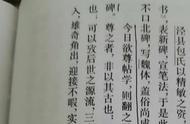 泾县包氏以精敏之资
书》,表新碑,宣笔法,于是此
不口北碑,写魏体,盖俗尚成
今日欲尊帖学,则翻
碑。尊之者,非以其古也:
也;可以攷后世之源流,三
入,雄奇角出,迎接不暇,实